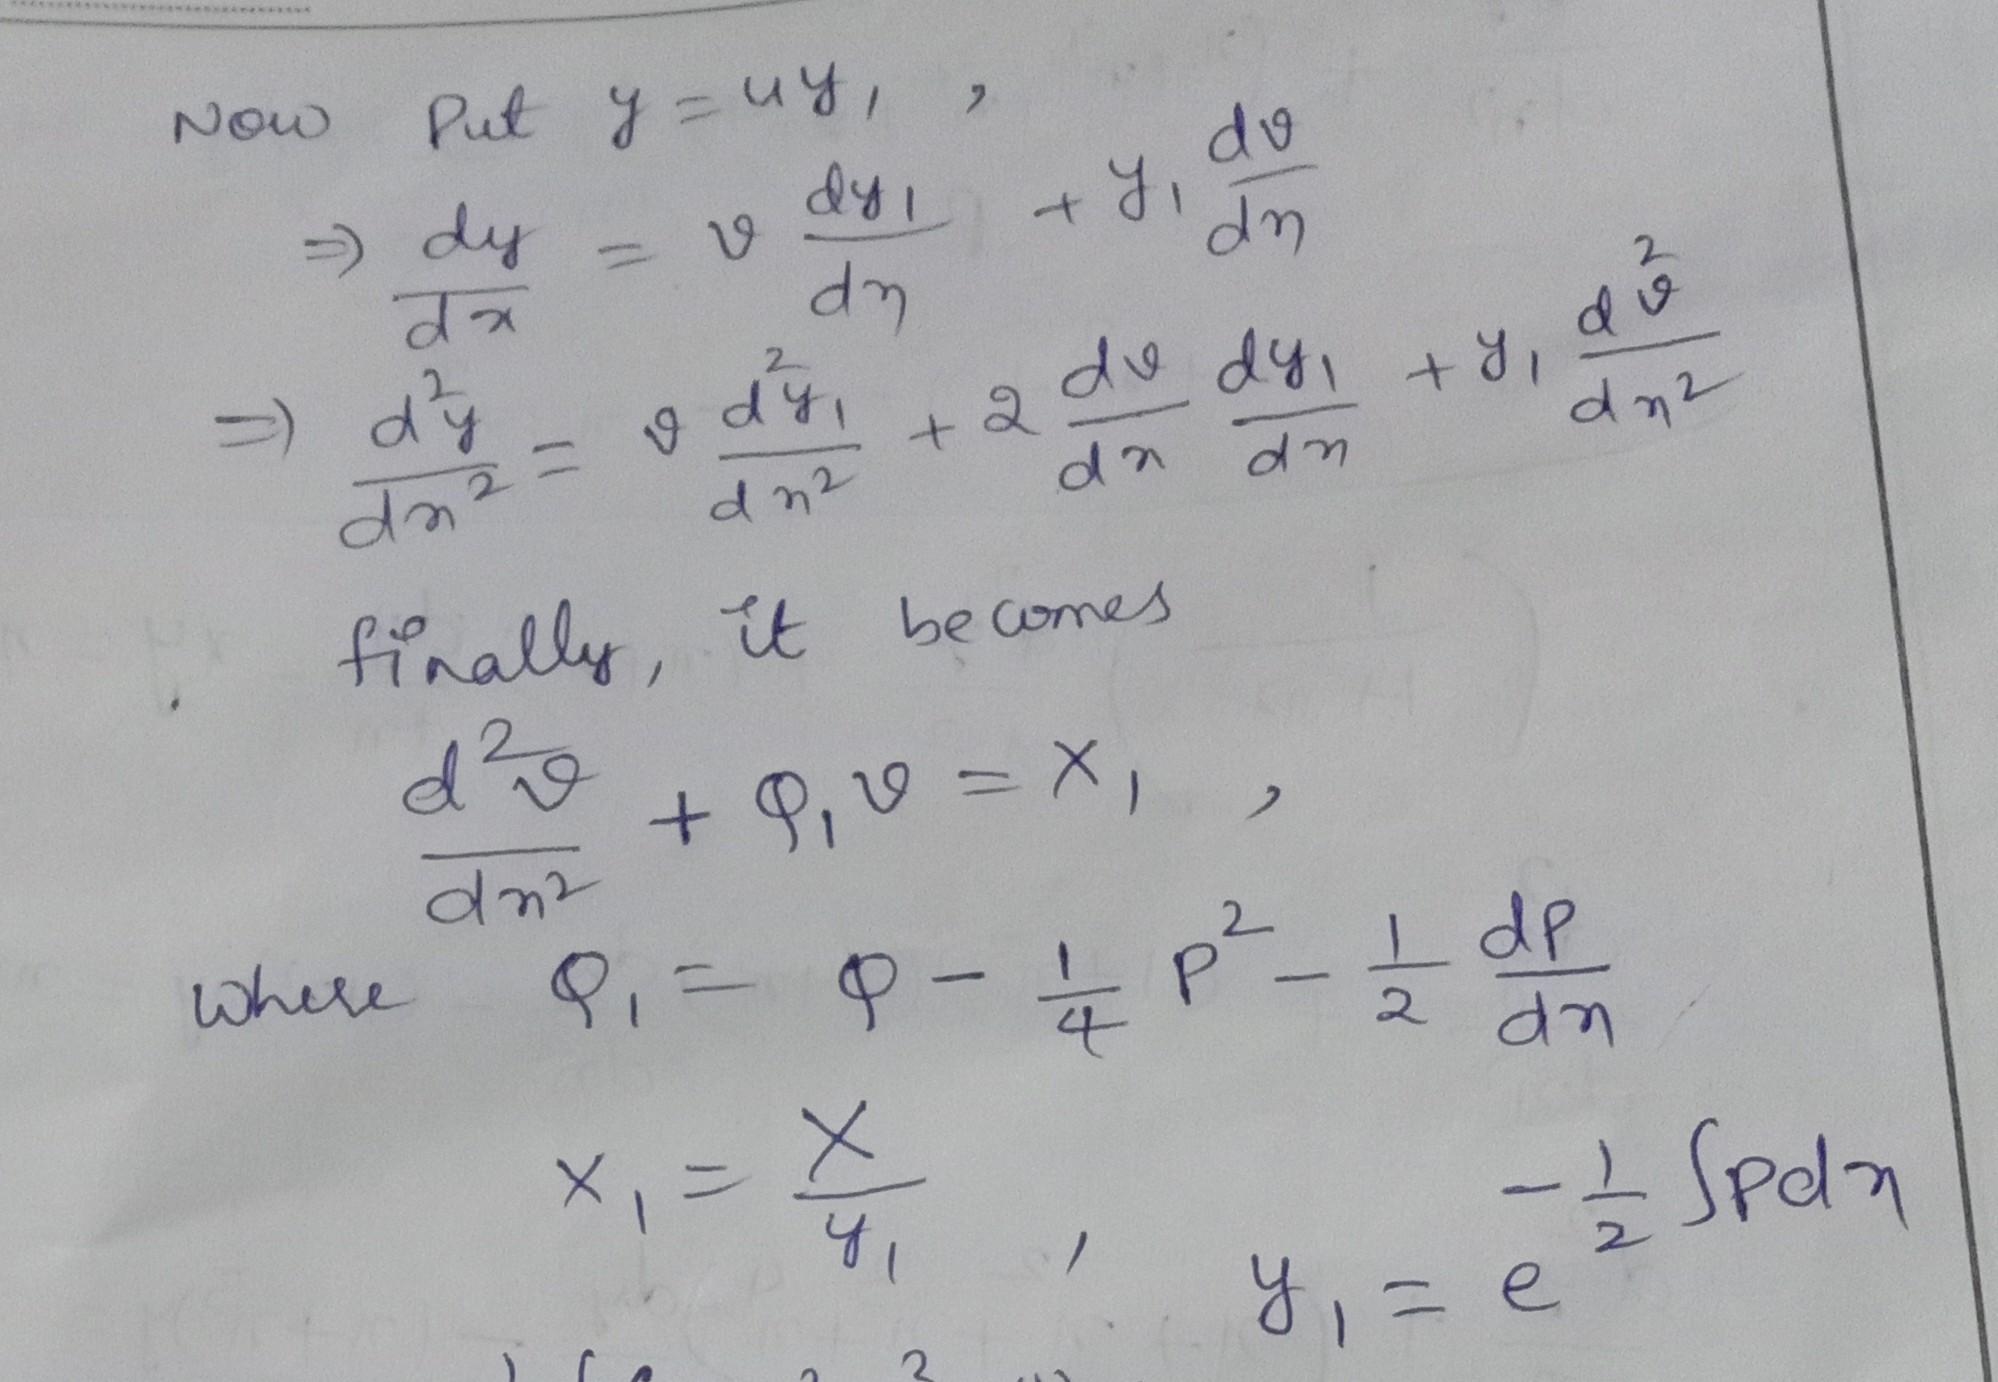 Now Put y = uy₁ ,
⇒ dy/dx = v dy₁/dx + y₁ dv/dx
⇒ d²y/dx² = v d²y₁/dx² + 2 dv/dx dy₁/dx + y₁ d²v/dx²
finally, it becomes
d²v/dx² + Q₁v = X₁ ,
where Q₁ = Q - 1/4 P² - 1/2 dP/dx
X₁ = X/y₁ , y₁ = e^(-1/2 ∫Pdx)